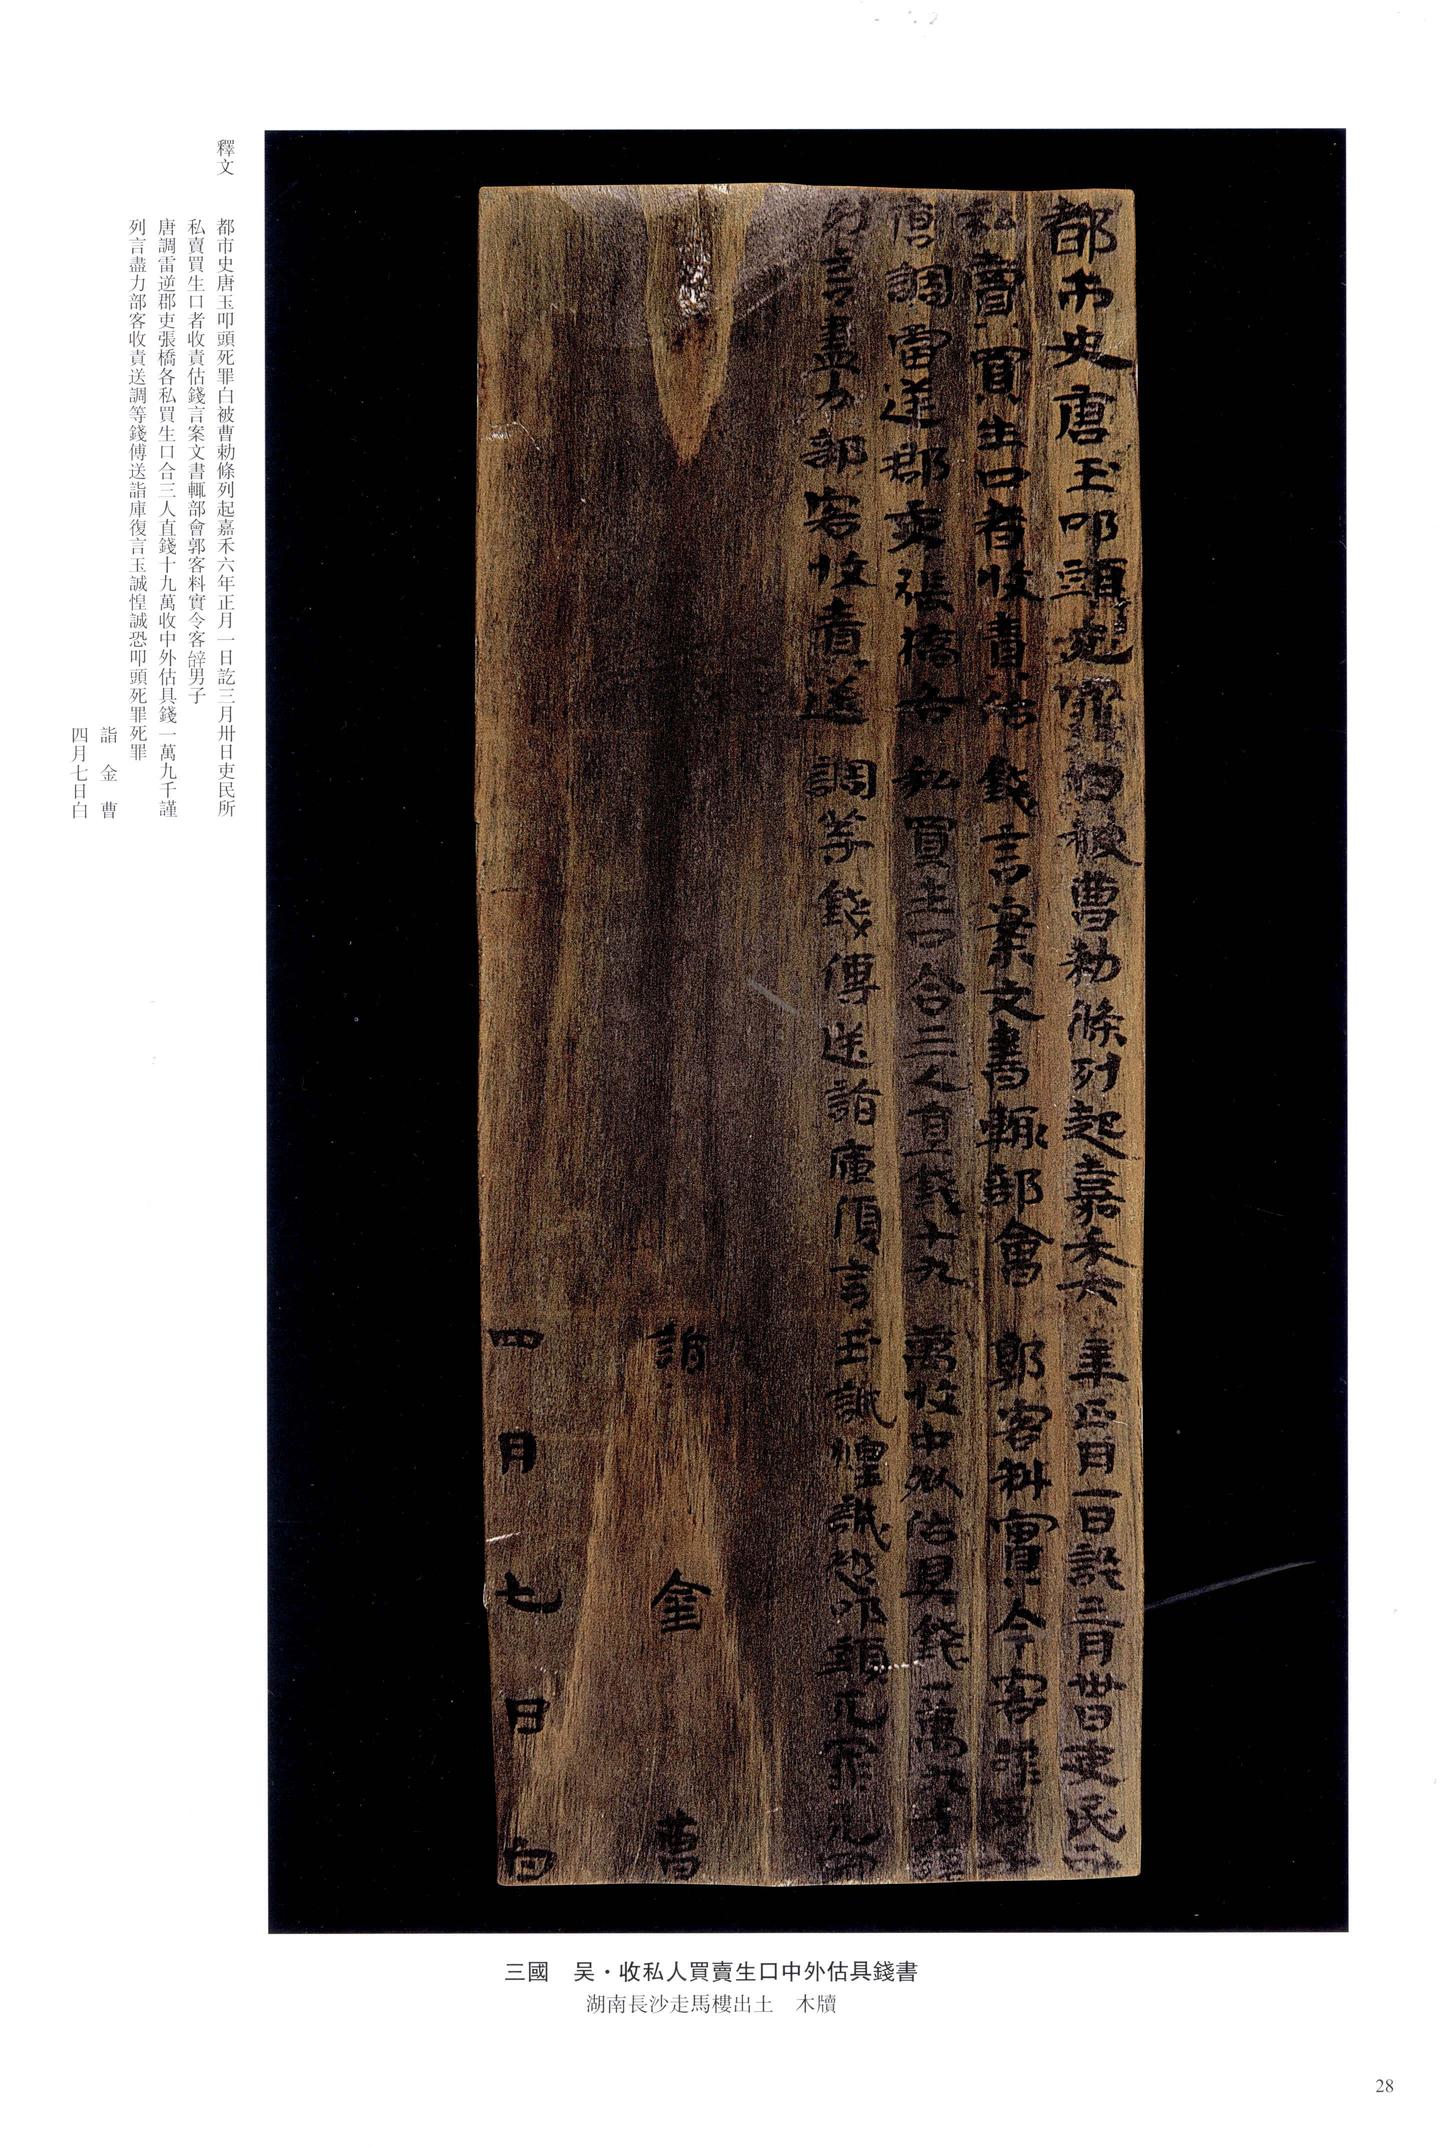 都市史唐玉叩頭死罪白被曹勑條列起嘉禾六年正月一日訖三月卅日吏民所
私賣買生口者收責估錢言案文書輒部會郭客料實今客辞男子
唐調雷逆郡吏張橋各私買生口合三人直錢十九萬收中外估具錢一萬九千謹
列言盡力部客收責送調等錢傅送詣庫復言玉誠惶誠恐叩頭死罪死罪
詣金曹
四月七日白
釋文
都市史唐玉叩頭死罪白被曹勑條列起嘉禾六年正月一日訖三月卅日吏民所
私賣買生口者收責估錢言案文書輒部會郭客料實令客辥男子
唐調雷逆郡吏張橋各私買生口合三人直錢十九萬收中外估具錢一萬九千謹
列言盡力部客收責送調等錢傅送詣庫復言玉誠惶誠恐叩頭死罪死罪
詣　金　曹
四月七日白
三國　吴·收私人買賣生口中外估具錢書
湖南長沙走馬樓出土　木牘
28